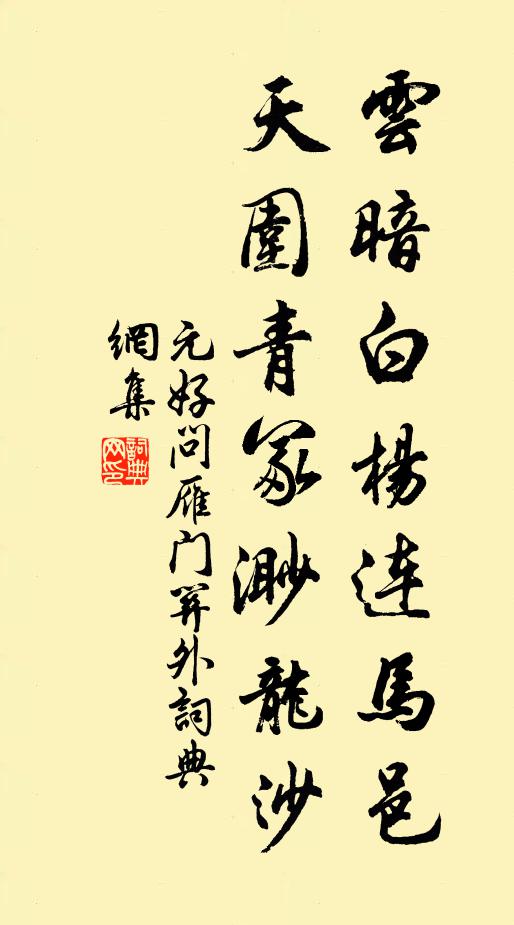 雲暗白楊連馬邑
天圍青冢渺龍沙
元好问雁门関外詞典
網集
詞典网印